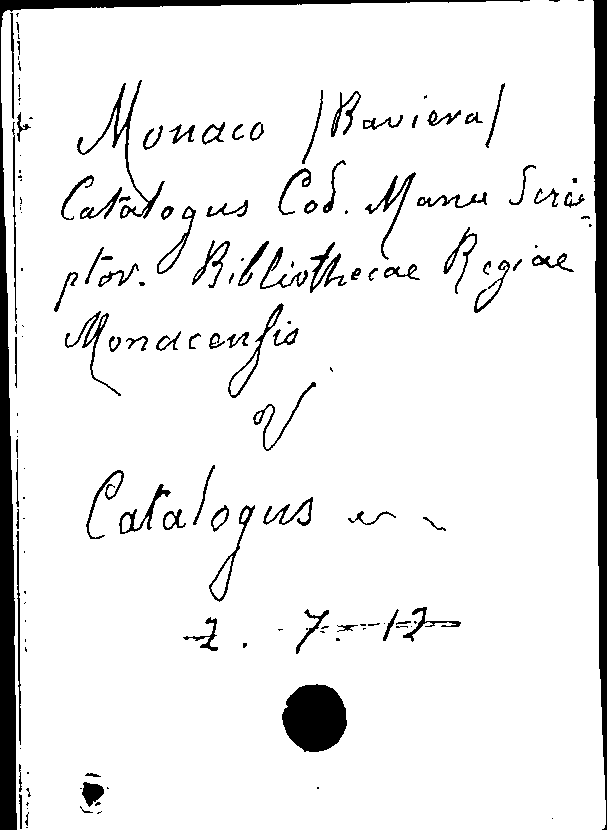 Monaco (Baviera)
Catalogus Cod. Manu Scri-
ptor. Bibliothecae Regiae
Monacensis
V
Catalogus
2. 7. 12